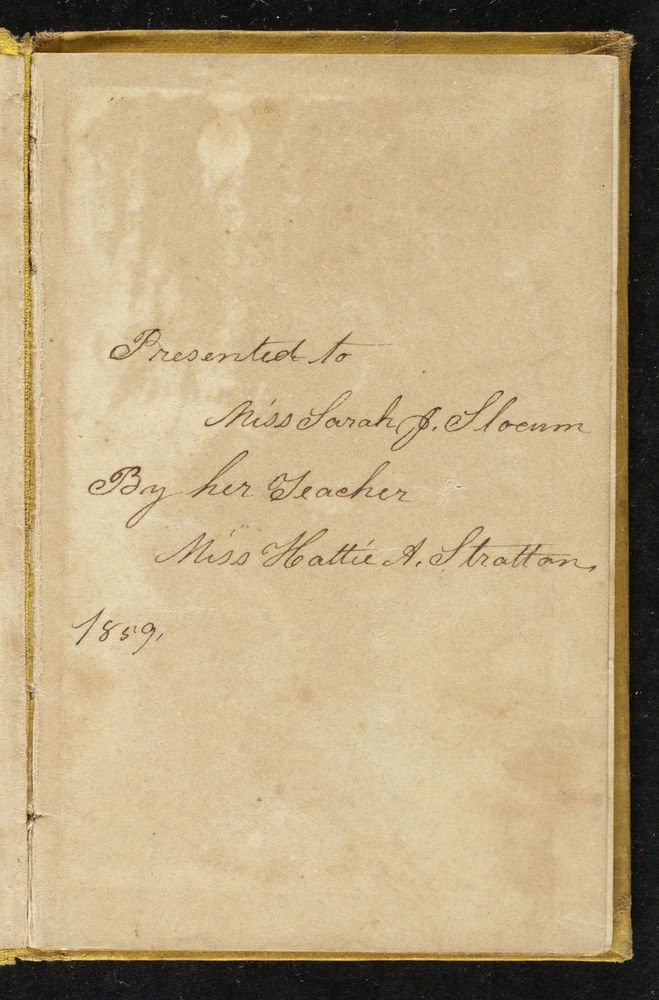 Presented to
Miss Sarah J. Slocum
By her Teacher
Miss Hattie A. Stratton,
1859,